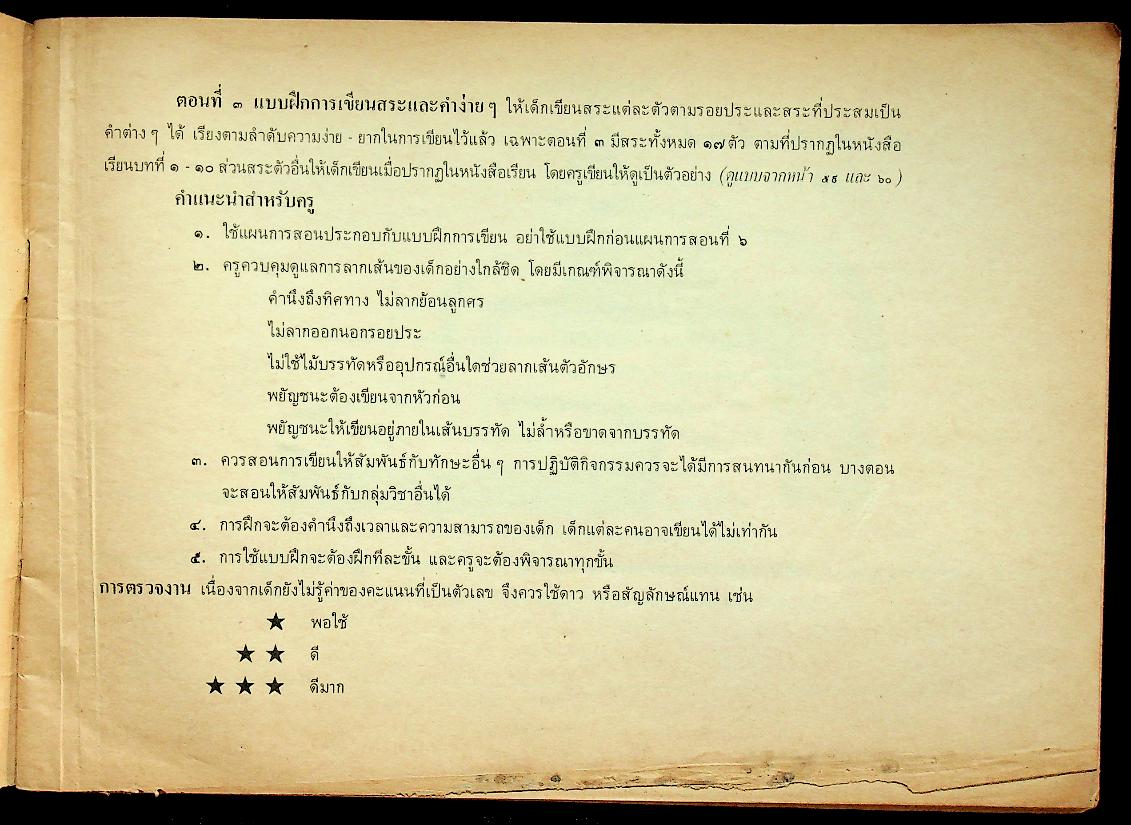 ตอนที่ ๓ แบบฝึกการเขียนสระและคำง่าย ๆ ให้เด็กเขียนสระแต่ละตัวตามรอยประและสระที่ประสมเป็น
คำต่าง ๆ ได้ เรียงตามลำดับความง่าย - ยากในการเขียนไว้แล้ว เฉพาะตอนที่ ๓ มีสระทั้งหมด ๑๗ ตัว ตามที่ปรากฏในหนังสือ
เรียนบทที่ ๑ - ๑๐ ส่วนสระตัวอื่นให้เด็กเขียนเมื่อปรากฏในหนังสือเรียน โดยครูเขียนให้ดูเป็นตัวอย่าง (ดูแบบจากหน้า ๕๙ และ ๖๐)
คำแนะนำสำหรับครู
๑. ใช้แผนการสอนประกอบกับแบบฝึกการเขียน อย่าใช้แบบฝึกก่อนแผนการสอนที่ ๖
๒. ครูควบคุมดูแลการลากเส้นของเด็กอย่างใกล้ชิด โดยมีเกณฑ์พิจารณาดังนี้
คำนึงถึงทิศทาง ไม่ลากย้อนลูกศร
ไม่ลากออกนอกรอยประ
ไม่ใช้ไม้บรรทัดหรืออุปกรณ์อื่นใดช่วยลากเส้นตัวอักษร
พยัญชนะต้องเขียนจากหัวก่อน
พยัญชนะให้เขียนอยู่ภายในเส้นบรรทัด ไม่ล้ำหรือขาดจากบรรทัด
๓. ควรสอนการเขียนให้สัมพันธ์กับทักษะอื่น ๆ การปฏิบัติกิจกรรมควรจะได้มีการสนทนากันก่อน บางตอน
จะสอนให้สัมพันธ์กับกลุ่มวิชาอื่นได้
๔. การฝึกจะต้องคำนึงถึงเวลาและความสามารถของเด็ก เด็กแต่ละคนอาจเขียนได้ไม่เท่ากัน
๕. การใช้แบบฝึกจะต้องฝึกทีละขั้น และครูจะต้องพิจารณาทุกขั้น
การตรวจงาน เนื่องจากเด็กยังไม่รู้ค่าของคะแนนที่เป็นตัวเลข จึงควรใช้ดาว หรือสัญลักษณ์แทน เช่น
★ พอใช้
★ ★ ดี
★ ★ ★ ดีมาก